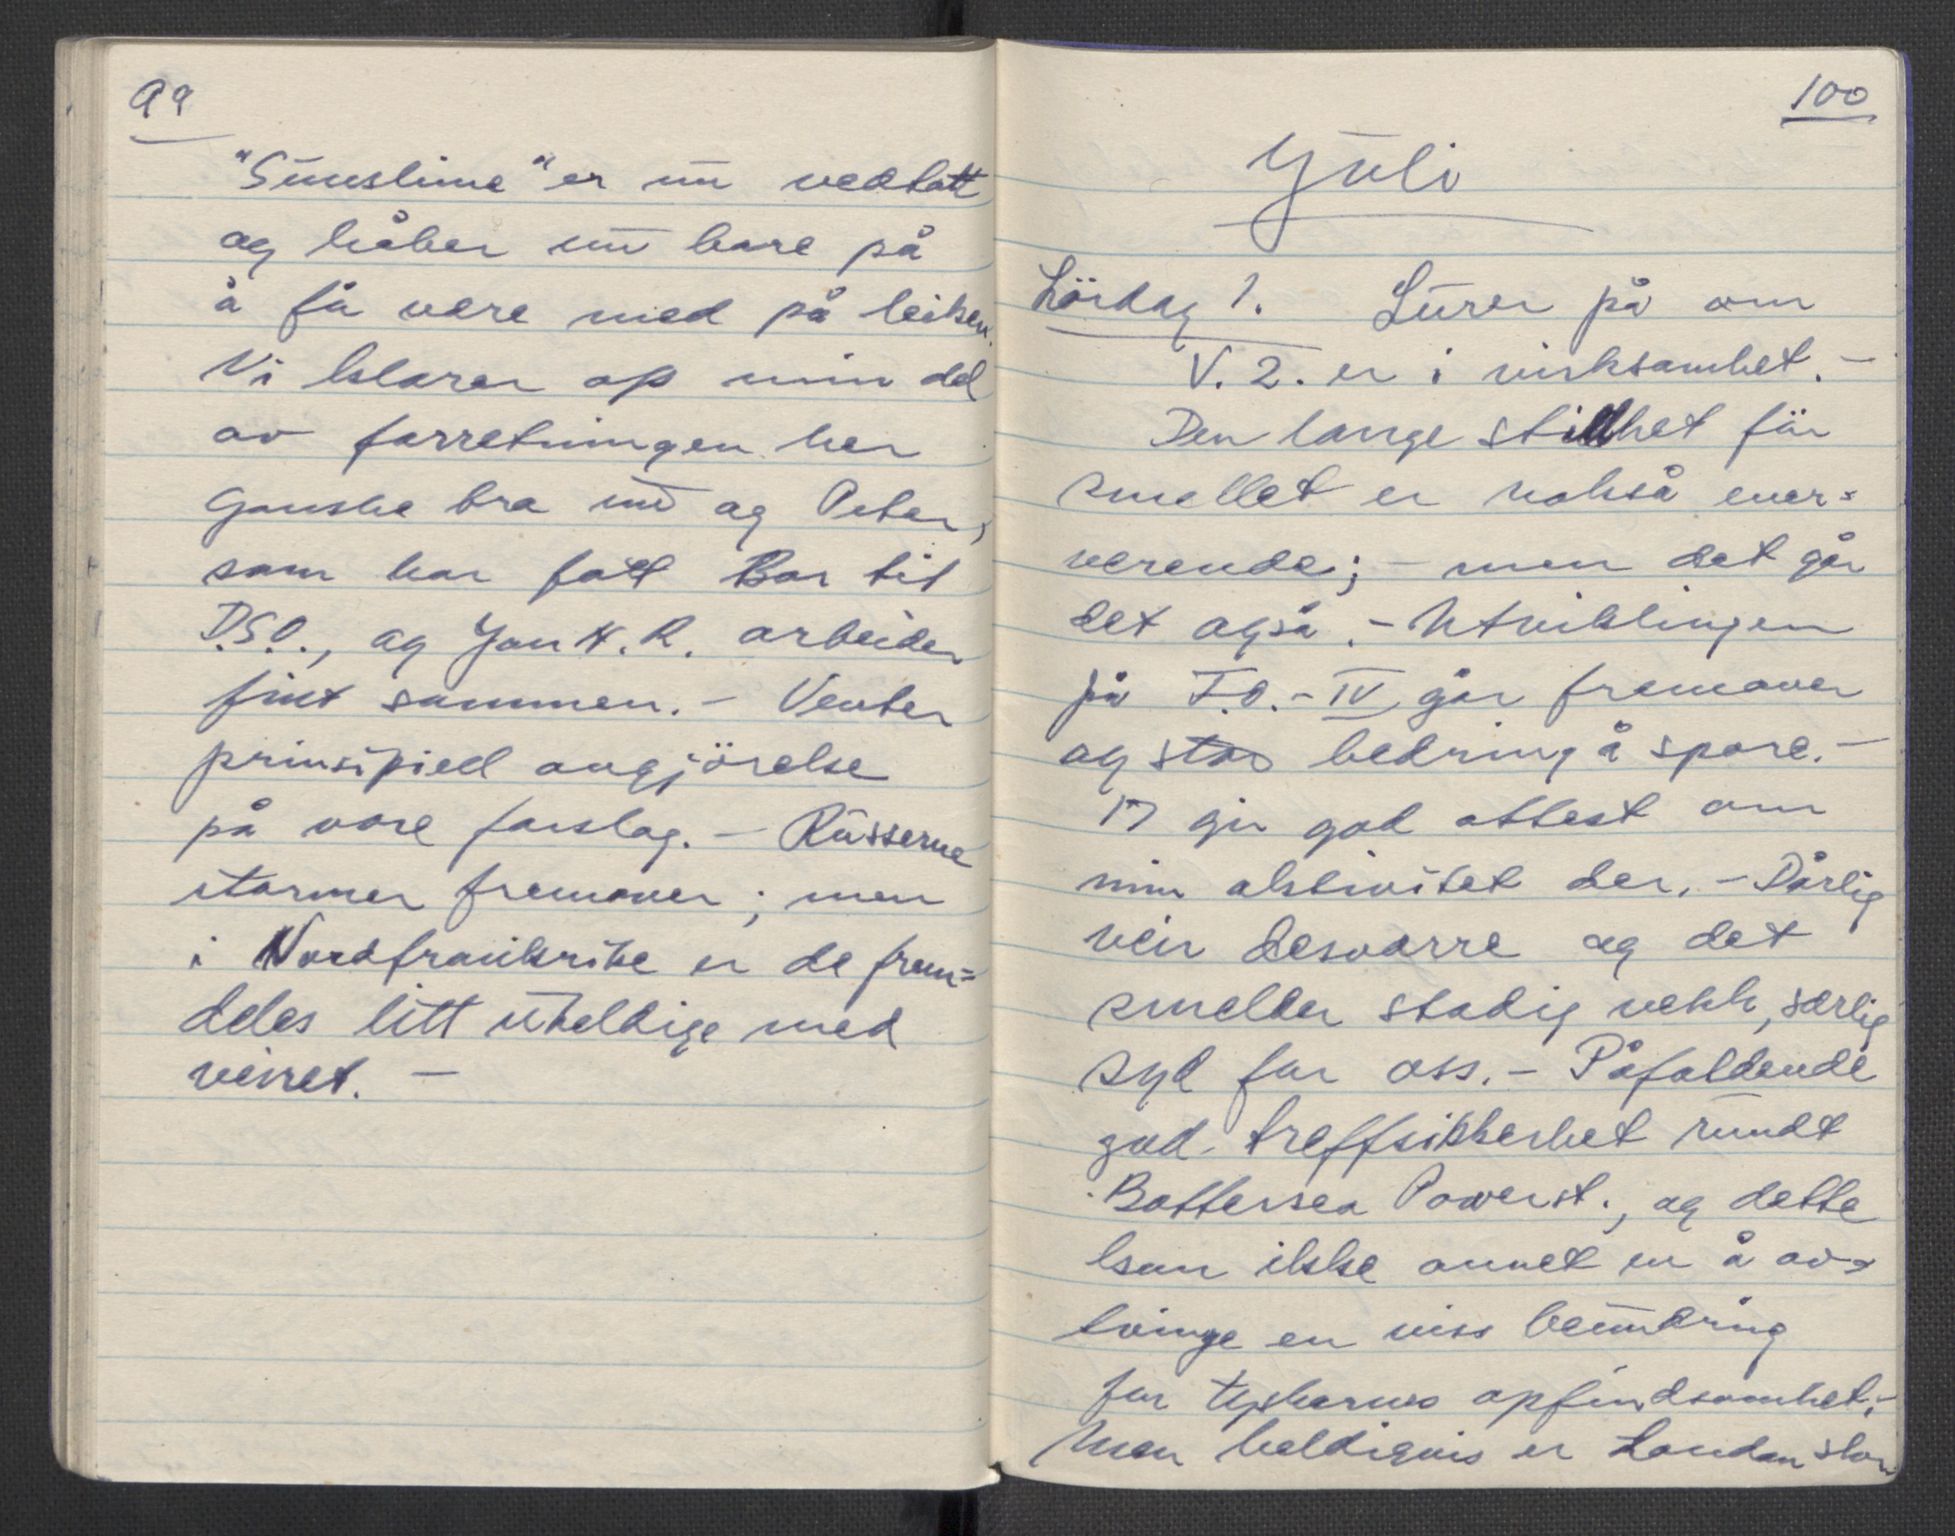 99
"Sunshine" er nu vedtatt
og håber nu bare på
å få være med på leiken.
Vi klarer op min del
av forretningen her
ganske bra nu og Peter,
som har fått Bar til
D.S.O., og Jan H. R. arbeider
fint sammen. – Venter
prinsipiell avgjörelse
på vore forslag. – Russerne
stormer fremover; men
i Nordfrankrike er de frem=
deles litt uheldige med
veiret. –
100
Juli
Lördag 1. Lurer på om
V. 2. er i virksamhet. –
Den lange stillhet för
smellet er nokså ener=
verende; – men det går
det også. – Utviklingen
på F.O. – IV går fremover
og stor bedring å spore. –
17 gir god attest om
min aktivitet der. – Dårlig
veir desværre og det
smelder stadig vekk, særlig
syd for oss. – Påfaldende
god treffsikkerhet rundt
Battersea Powerst., og dette
kan ikke annet en å av=
tvinge en viss beundring
for tyskernes opfindsomhet. –
Men heldigvis er London stor